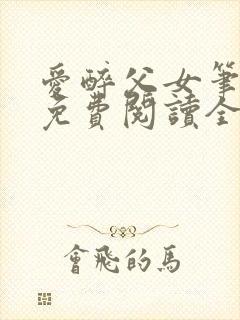 愛醉父女筆
免費閱讀全
會飛的馬